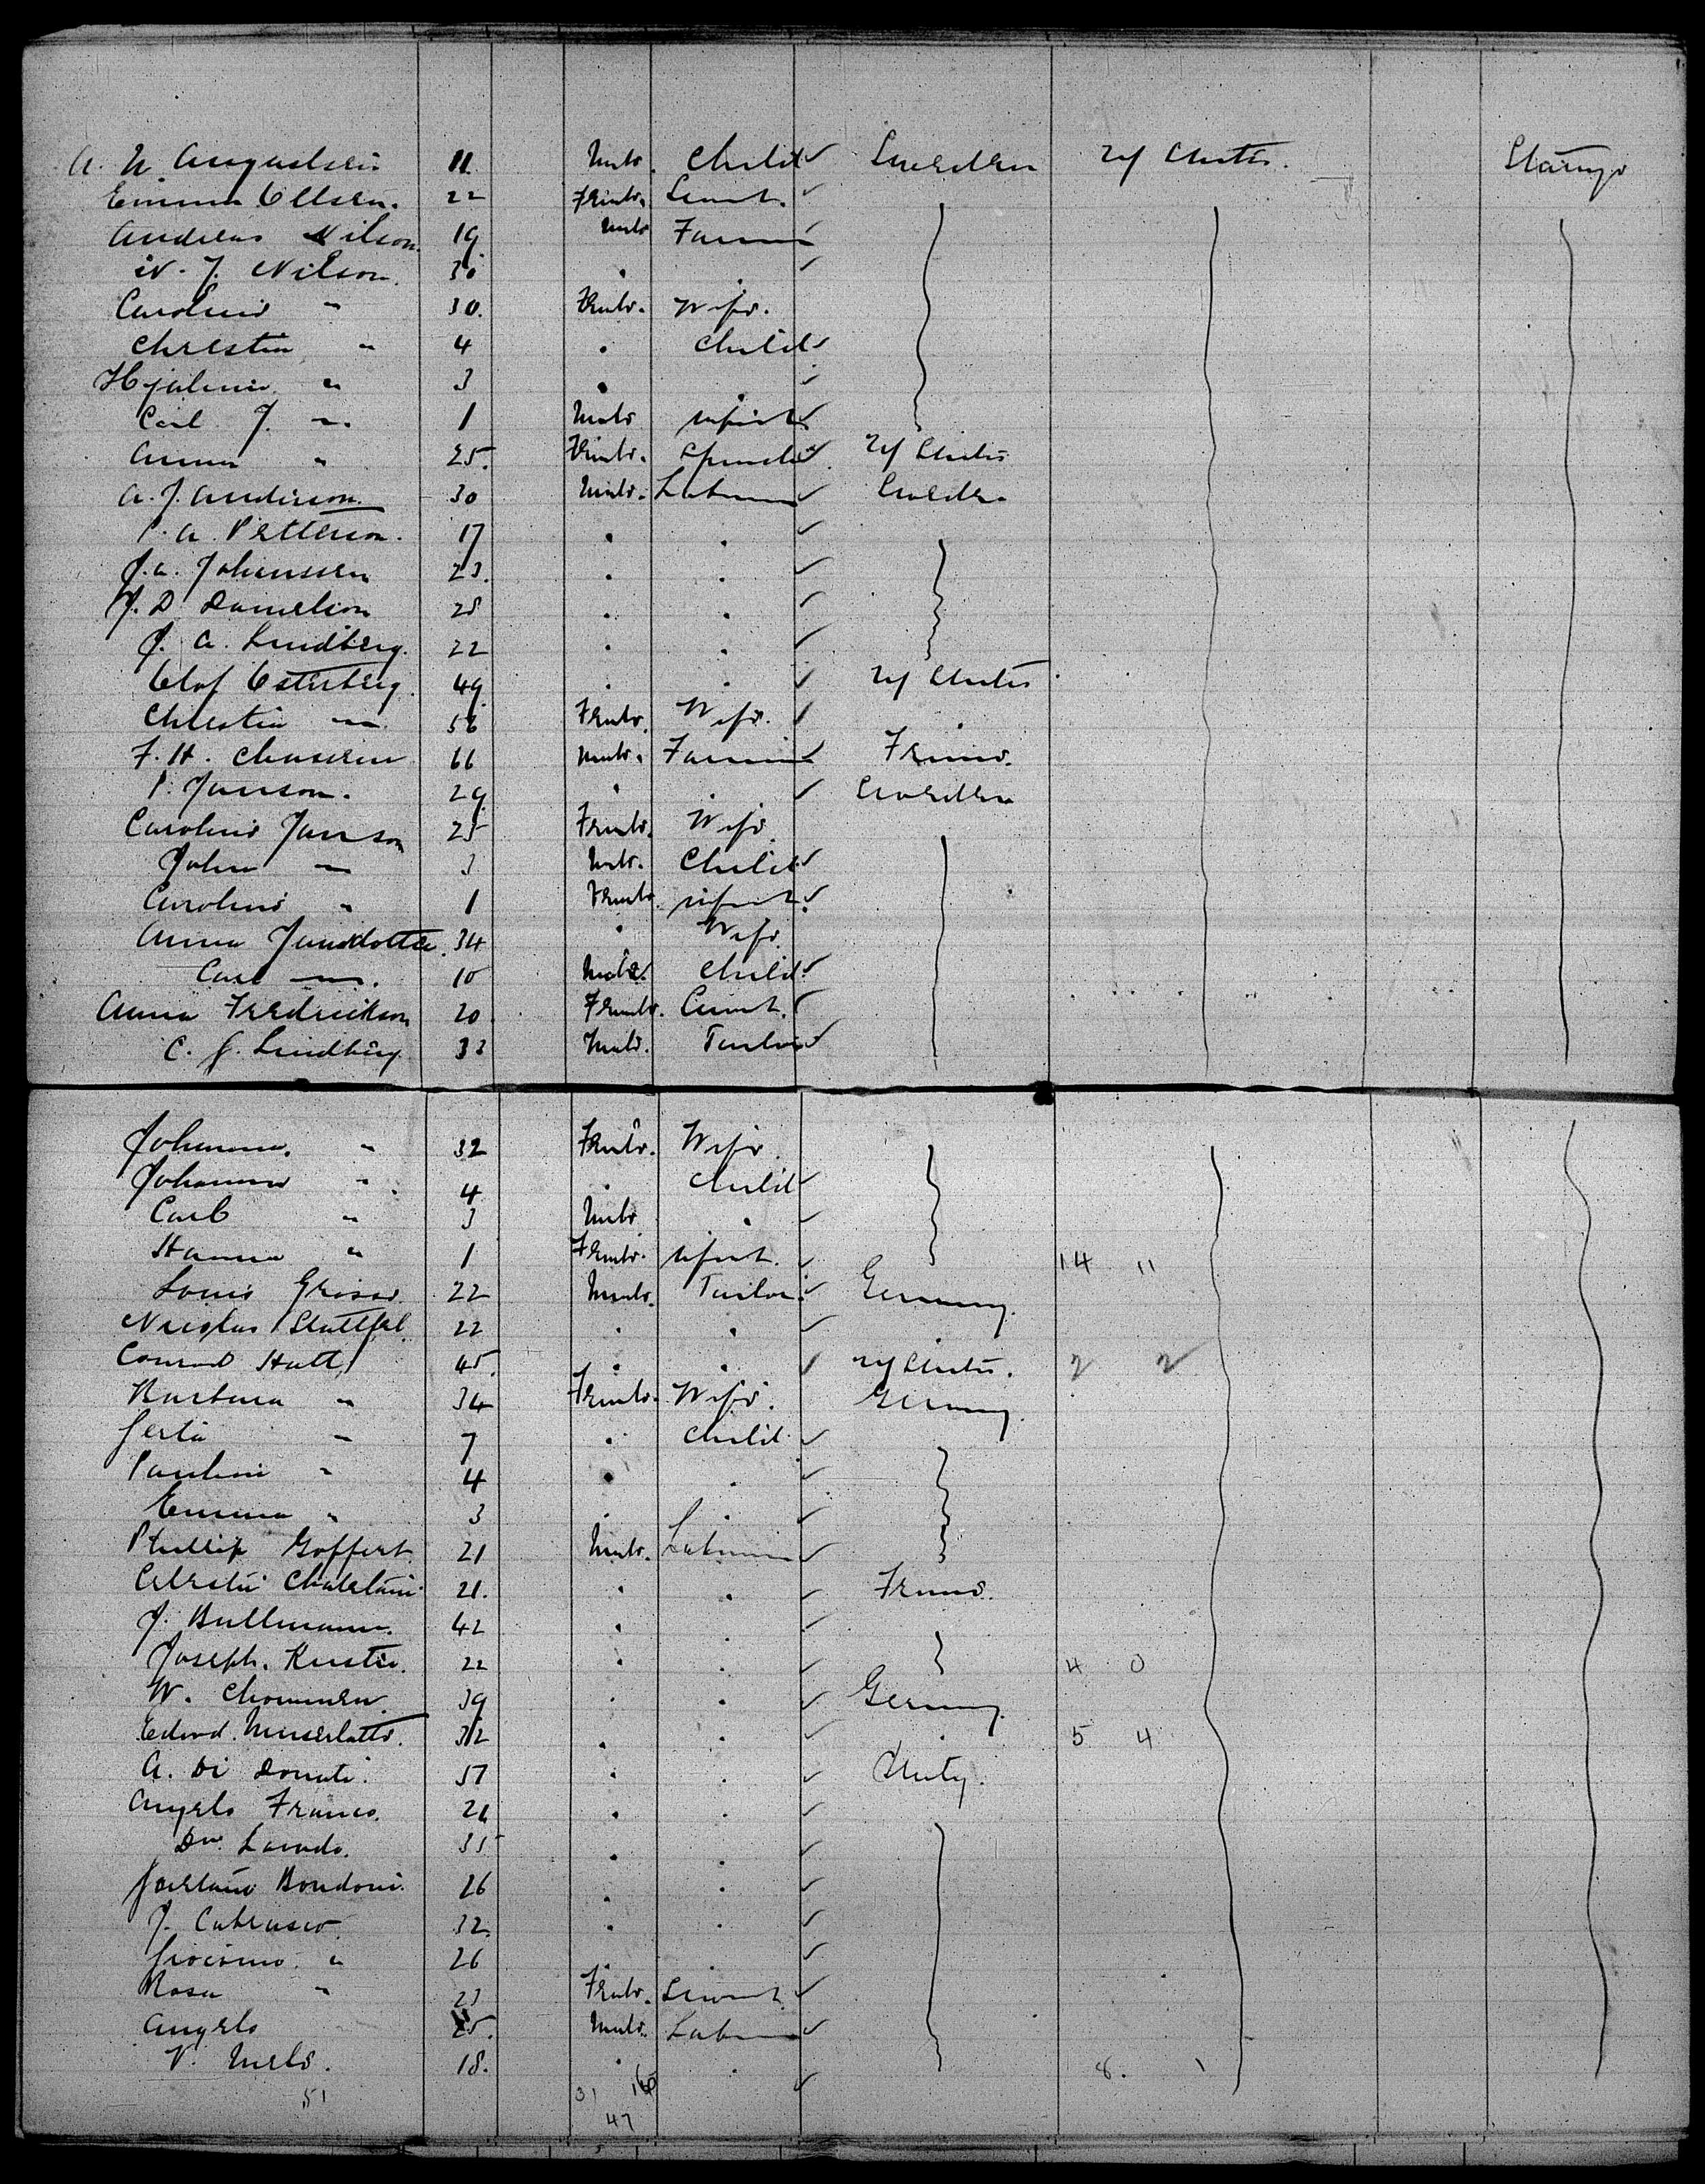 A. N. Augustsen 11 Male Child Sweden U States Steerage
Emma Ollsen. 22 Female Servt.
Andreas Nilson. 19 Male Farmer
N. J. Nilson. 30 " "
Caroline " 30. Female. Wife.
Christin " 4 " Child
Hjalmer " 3 " "
Carl J. " 1 Male infant
Anna " 25. Female. Spinster U States
A. J. Anderson. 30 Male. Labourer Sweden
P. A. Petterson. 17 " "
J. A. Johanssen 23. " "
J. D Danielson 28 " "
J. A. Lindberg. 22 " "
Olof Osterberg. 49. " " U States
Christin " 56 Female. Wife. "
F. H. 66 Male. Farmer France.
P. Janson. 29. " " Sweden
Caroline Janson 25 Female. Wife
John " 3 Male. Child
Caroline " 1 Female. infant.
Anna Jansdotter. 34 " Wife.
Carl " 10 Male. Child.
Anna Fredrickson 20 Female. Servt.
C. J. Lindberg. 33 Male. Tailor
Johanna. " 32 Female. Wife.
Johanna " 4 " Child
Carl " 3 Male "
Hanna " 1 Female. infant. 14 11
Louis 22 Male. Tailor. Germany.
22 " "
Conrad Hutt 45. " " U States. 2 2
Barbara " 34 Female. Wife. Germany.
" 7 " Child
Paulin " 4 " "
Emma " 3 " "
Phillip Goffert. 21 Male. Labourer
21. " " France.
J. Bullmann. 42 " "
Joseph. 22 " " 4 0
W. 39 " " Germany.
Edward 32 " " " 5 4
A. Di Donati. 57 " " Italy.
Angelo Franco. 21 " "
35 " "
Bondoni. 26 " "
J. 32. " "
Giocomo " 26 " "
Rosa " 23 Female. Servant.
Angelo 25. Male. Labourer
V. Mele. 18. " " 8. 1
51 31 160
47